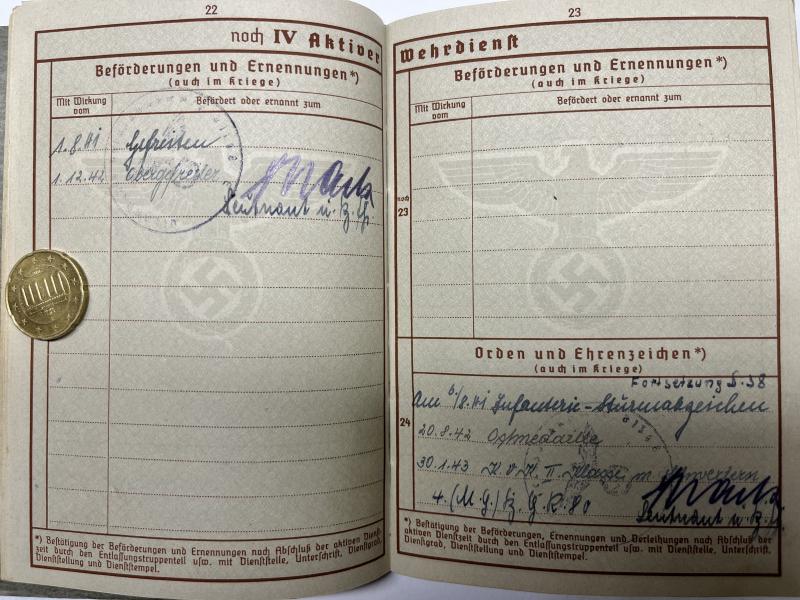 22
noch IV Aktiver
Beförderungen und Ernennungen*)
(auch im Kriege)
Mit Wirkung vom
Befördert oder ernannt zum
1.8.41 Gefreiten
1.12.42 Obergefreiter
Leutnant u.
*) Bestätigung der Beförderungen und Ernennungen nach Abschluß der aktiven Dienst-
zeit durch den Entlassungstruppenteil usw. mit Dienststelle, Unterschrift, Dienstgrad,
Dienststellung und Dienststempel.
23
Wehrdienst
Beförderungen und Ernennungen*)
(auch im Kriege)
Mit Wirkung vom
Befördert oder ernannt zum
noch
23
Orden und Ehrenzeichen*)
(auch im Kriege)
Fortsetzung S. 38
24
Am 6./8.41 Infanterie-Sturmabzeichen
20.8.42 Ostmedaille
30.1.43 K.V.K. II. Klasse m. Schwertern
4. (M.G.) G.R.80
Leutnant u.
*) Bestätigung der Beförderungen, Ernennungen und Verleihungen nach Abschluß der
aktiven Dienstzeit durch den Entlassungstruppenteil usw. mit Dienststelle, Unterschrift,
Dienstgrad, Dienststellung und Dienststempel.